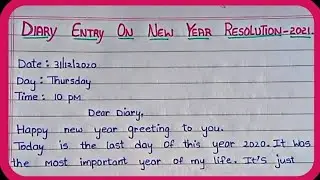 DIARY ENTRY ON NEW YEAR RESOLUTION-2021.
Date : 31/12/2020
Day : Thursday
Time : 10 pm
Dear Diary,
Happy new year greeting to you.
Today is the last day of this year 2020. It was
the most important year of my life. It's just